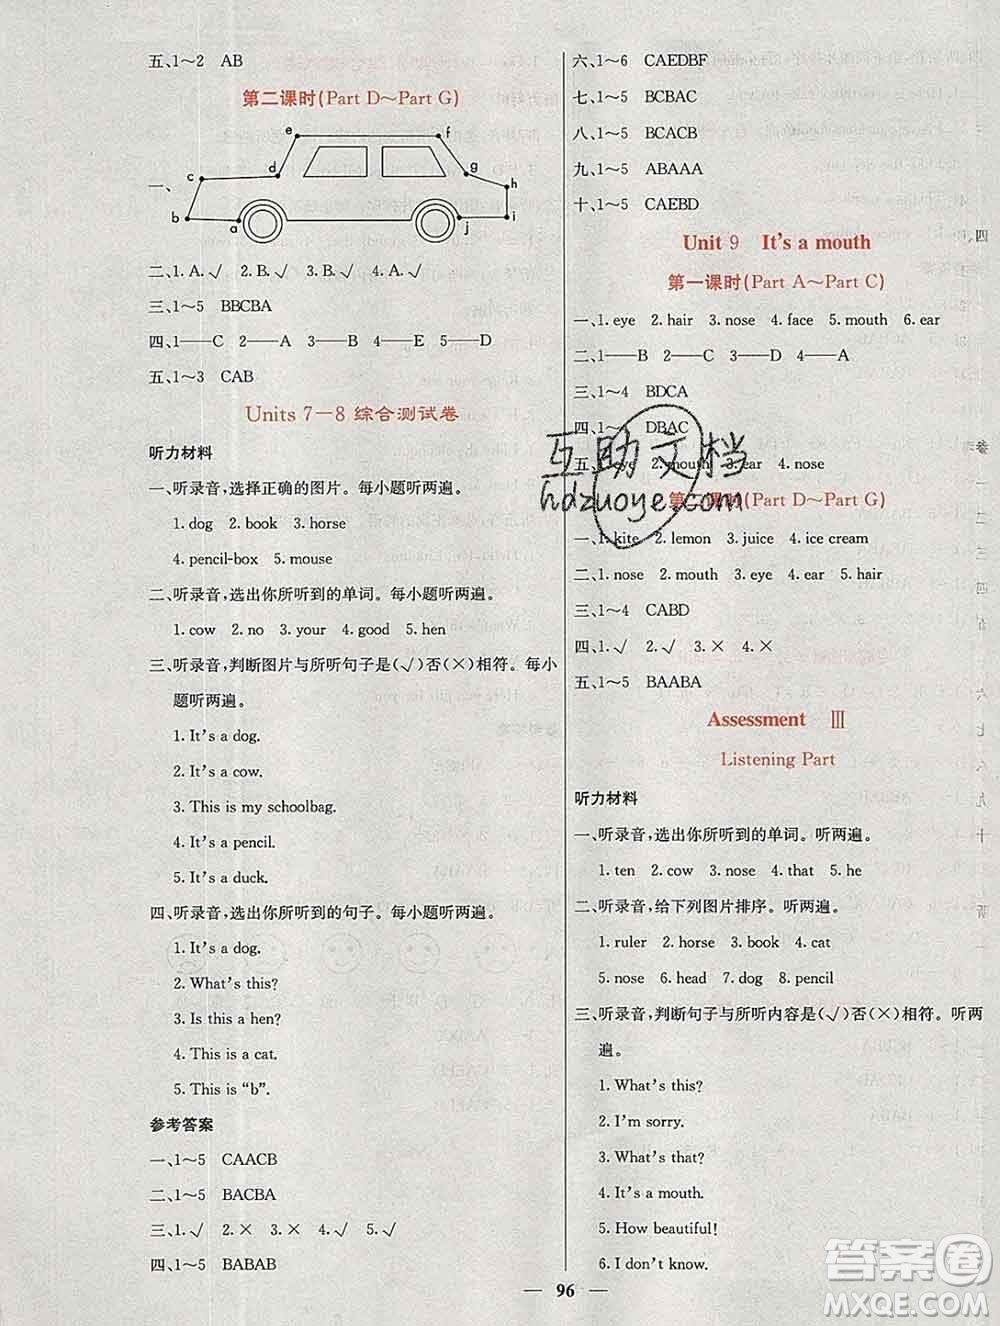 五、1～2　AB
第二课时(Part D～Part G)
一、
a
b
c
d
e
f
g
h
i
j
二、1. A.√　2. B.√　3. B.√　4. A.√
三、1～5　BBCBA
四、1——C　2——A　3——B　4——E　5——D
五、1～3　CAB
Units 7－8 综合测试卷
听力材料
一、听录音,选择正确的图片。每小题听两遍。
1. dog　2. book　3. horse
4. pencil-box　5. mouse
二、听录音,选出你所听到的单词。每小题听两遍。
1. cow　2. no　3. your　4. good　5. hen
三、听录音,判断图片与所听句子是(√)否(×)相符。每小
题听两遍。
1. It's a dog.
2. It's a cow.
3. This is my schoolbag.
4. It's a pencil.
5. It's a duck.
四、听录音,选出你所听到的句子。每小题听两遍。
1. It's a dog.
2. What's this?
3. Is this a hen?
4. This is a cat.
5. This is “b”.
参考答案
一、1～5　CAACB
二、1～5　BACBA
三、1.√　2.×　3.×　4.√　5.√
四、1～5　BABAB
六、1～6　CAEDBF
七、1～5　BCBAC
八、1～5　BCACB
九、1～5　ABAAA
十、1～5　CAEBD
Unit 9　It's a mouth
第一课时(Part A～Part C)
一、1. eye　2. hair　3. nose　4. face　5. mouth　6. ear
二、1——B　2——C　3——D　4——A
三、1～4　BDCA
四、1～4　DBAC
五、1. eye　2. mouth　3. ear　4. nose
第二课时(Part D～Part G)
一、1. kite　2. lemon　3. juice　4. ice cream
二、1. nose　2. mouth　3. eye　4. ear　5. hair
三、1～4　CABD
四、1.√　2.√　3.×　4.×
五、1～5　BAABA
Assessment　Ⅲ
Listening Part
听力材料
一、听录音,选出你所听到的单词。听两遍。
1. ten　2. cow　3. nose　4. that　5. he
二、听录音,给下列图片排序。听两遍。
1. ruler　2. horse　3. book　4. cat
5. nose　6. head　7. dog　8. pencil
三、听录音,判断句子与所听内容是(√)否(×)相符。听两
遍。
1. What's this?
2. I'm sorry.
3. What's that?
4. It's a mouth.
5. How beautiful!
6. I don't know.
— 96 —
互助文档
hdzuoye.com
答案圈
MXQE.COM